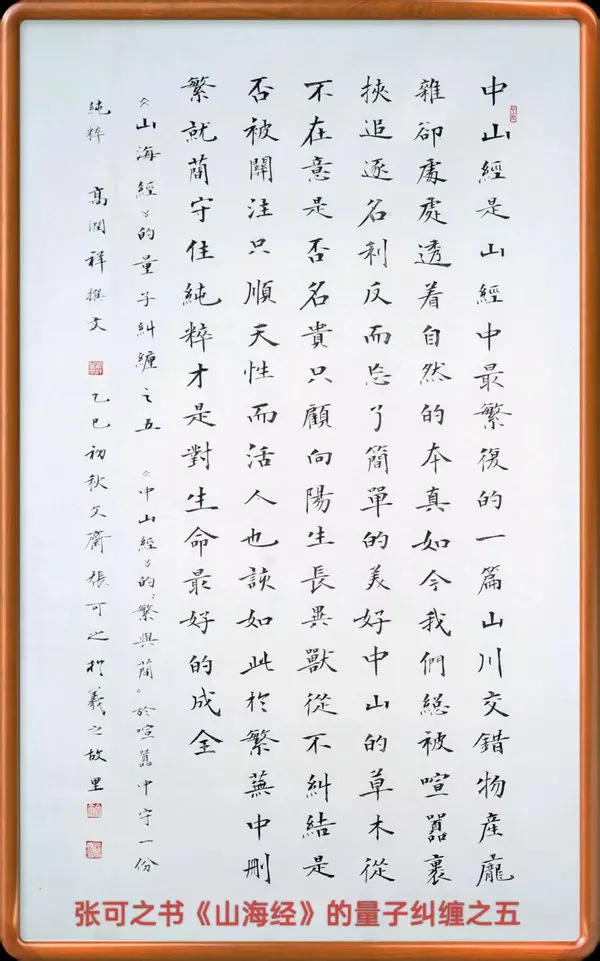 中山經是山經中最繁復的一篇山川交錯物產龐
雜卻處處透着自然的本真如今我們總被喧囂裹
挾追逐名利反而忘了簡單的美好中山的草木從
不在意是否名貴只顧向陽生長異獸從不糾結是
否被關注只順天性而活人也該如此於繁蕪中刪
繁就蕳守住純粹才是對生命最好的成全
《山海經》的量子糾纏之五 《中山經》的“繁與蕳”於喧囂中守一份
純粹 高潤祥撰文 乙巳初秋文齋張可之於羲之故里
张可之书《山海经》的量子纠缠之五